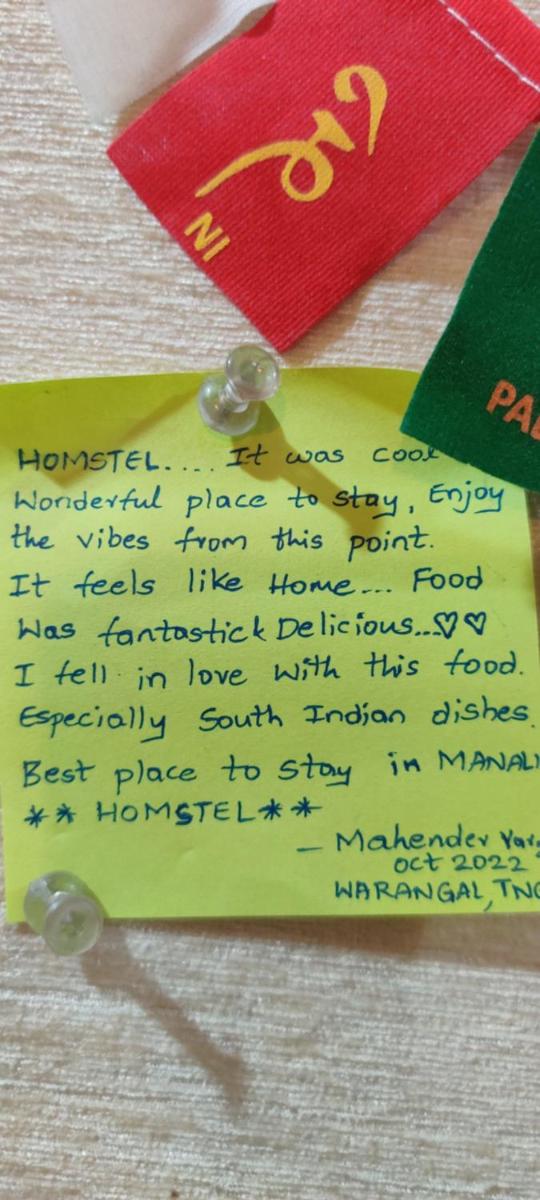 NI
PA
HOMSTEL.... It was cool
Wonderful place to stay, Enjoy
the vibes from this point.
It feels like Home... Food
Was fantastick Delicious...♡♡
I fell in love with this food.
Especially South Indian dishes.
Best place to stay in MANALI
** HOMSTEL**
— Mahender
oct 2022
WARANGAL,